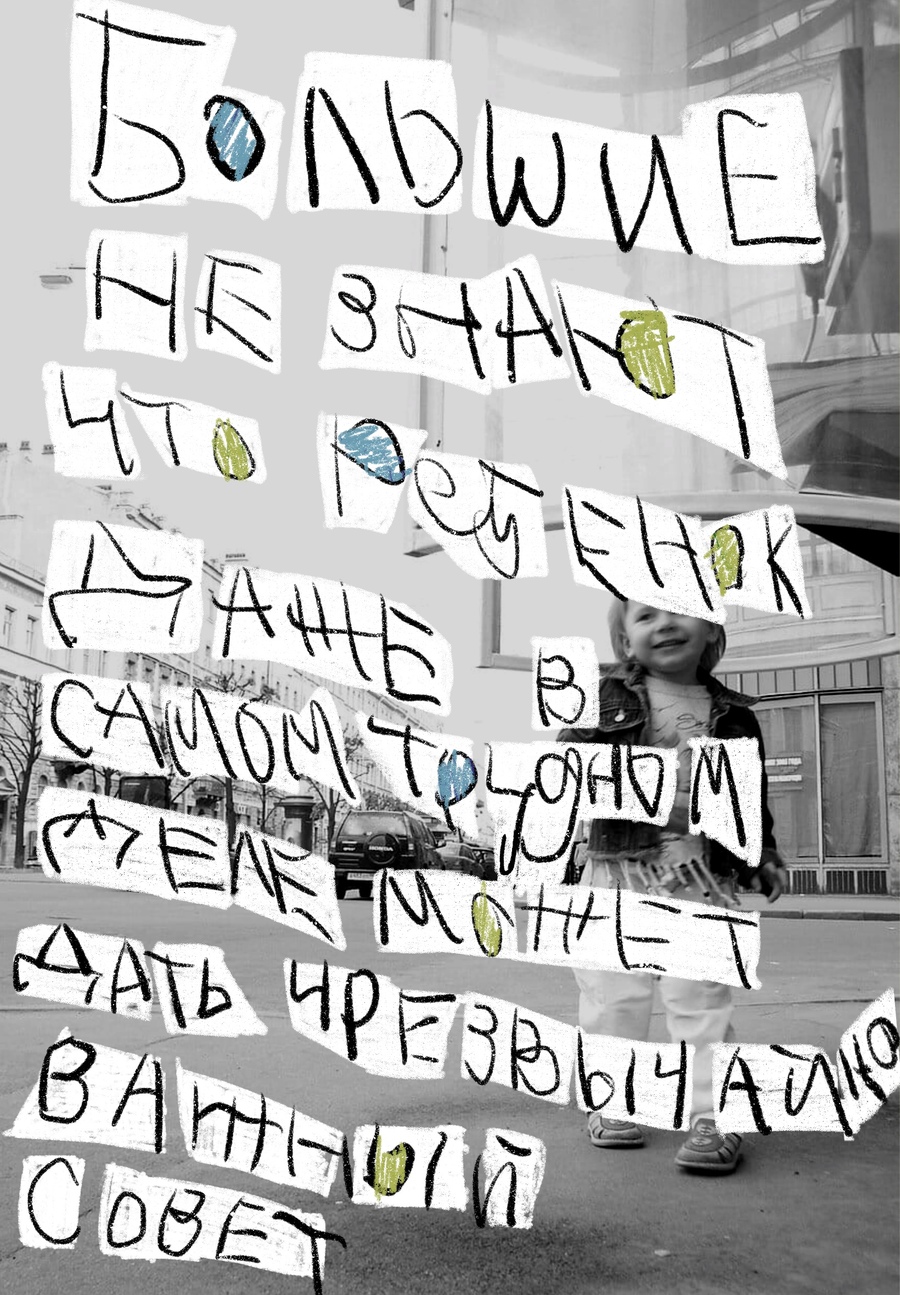 БОЛЬШИЕ
НЕ ЗНАЮТ
ЧТО РебЕНОК
ДАЖЕ В
САМОМ ТРУдНОМ
ДЕЛЕ МОЖЕТ
ДАТЬ ЧРЕЗВЫЧАЙНО
ВАЖНЫЙ
СОВЕТ